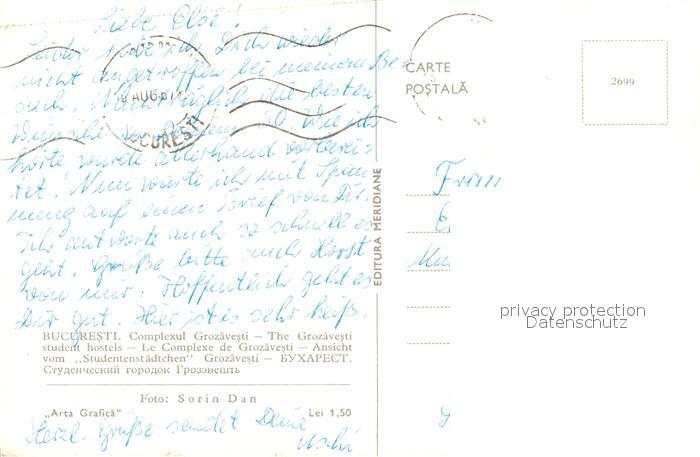 Liebe Else!
Leider habe ich Dich wieder
nicht angetroffen bei meinem Be-
such. Nachträglich die besten
Wünsche zu Deinem 60 Wie ich
hörte wurde allerhand vorberei-
tet! Nun warte ich mit Span-
nung auf einen Brief von Dir.
Ich antworte auch so schnell es
geht. Grüße bitte auch Horst
von mir. Hoffentlich geht es
Dir gut. Hier ist es sehr heiß.
BUCUREȘTI. Complexul Grozăvești — The Grozăvești
student hostels — Le Complexe de Grozăvești — Ansicht
vom „Studentenstädtchen" Grozăvești — БУХАРЕСТ.
Студенческий городок Грозэвешть
Foto: Sorin Dan
„Arta Grafică" Lei 1,50
Herzl. Grüße sendet Deine
Uschi
AUG
BUCUREȘTI
EDITURA MERIDIANE
CARTE
POȘTALĂ
2699
Frau
privacy protection
Datenschutz